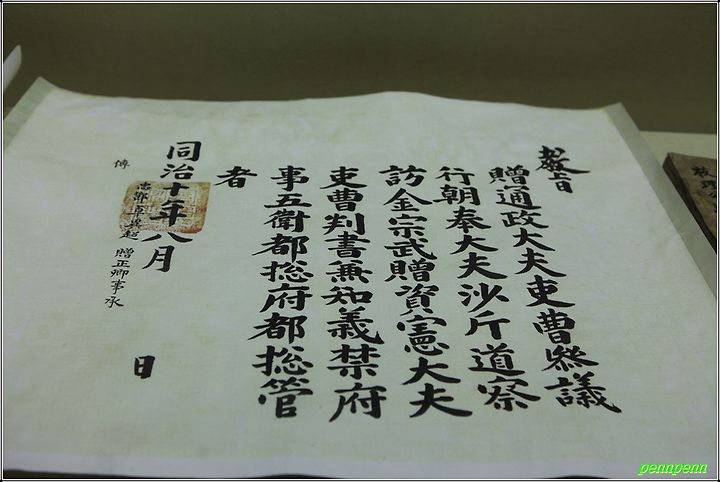 敎旨
贈通政大夫吏曹叅議
行朝奉大夫沙斤道察
訪金宗武贈資憲大夫
吏曹判書兼知義禁府
事五衛都摠府都摠管
者
同治十年八月 日
忠節卓異超 贈正卿事承
傳
pennpenn